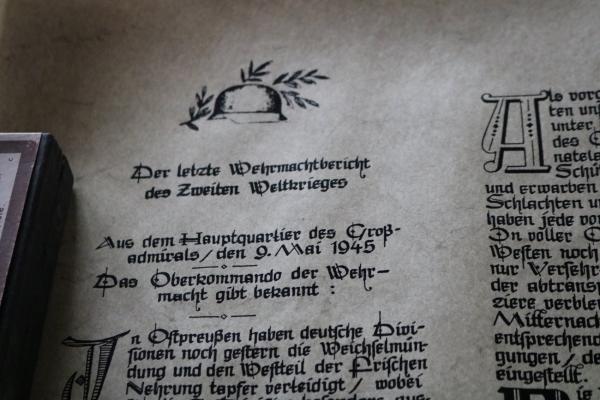 Der letzte Wehrmachtbericht
des Zweiten Weltkrieges
Aus dem Hauptquartier des Groß-
admirals, den 9. Mai 1945
Das Oberkommando der Wehr-
macht gibt bekannt :
In Ostpreußen haben deutsche Divi-
sionen noch gestern die Weichselmün-
dung und den Westteil der Frischen
Nehrung tapfer verteidigt, wobei
Als vorg
ten un
unter
des
Schü
und erwarben
Schlachten u
haben jede vo
In voller
Westen noch
nur Versehr
der abtransp
ziere verble
Mitternach
entsprechend
gungen, de
eingestellt.